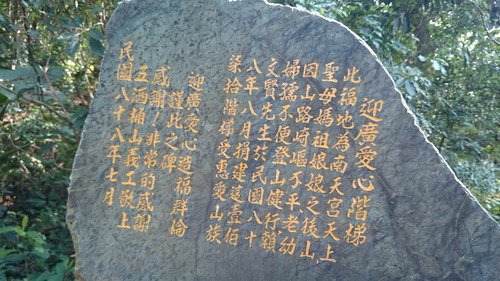 迎廣愛心階梯
此福地為南天宮天上
聖母媽祖娘娘之後山
因山路崎嶇不平、老幼
婦孺不便登山健行、賴
文賢先生於民國八十
八年八月捐建造壹佰
柒拾階梯受惠愛山族
迎廣愛心造福群倫
謹此之碑
感謝!非常的感謝
五酒桶山義工敬上
民國八十八年七月